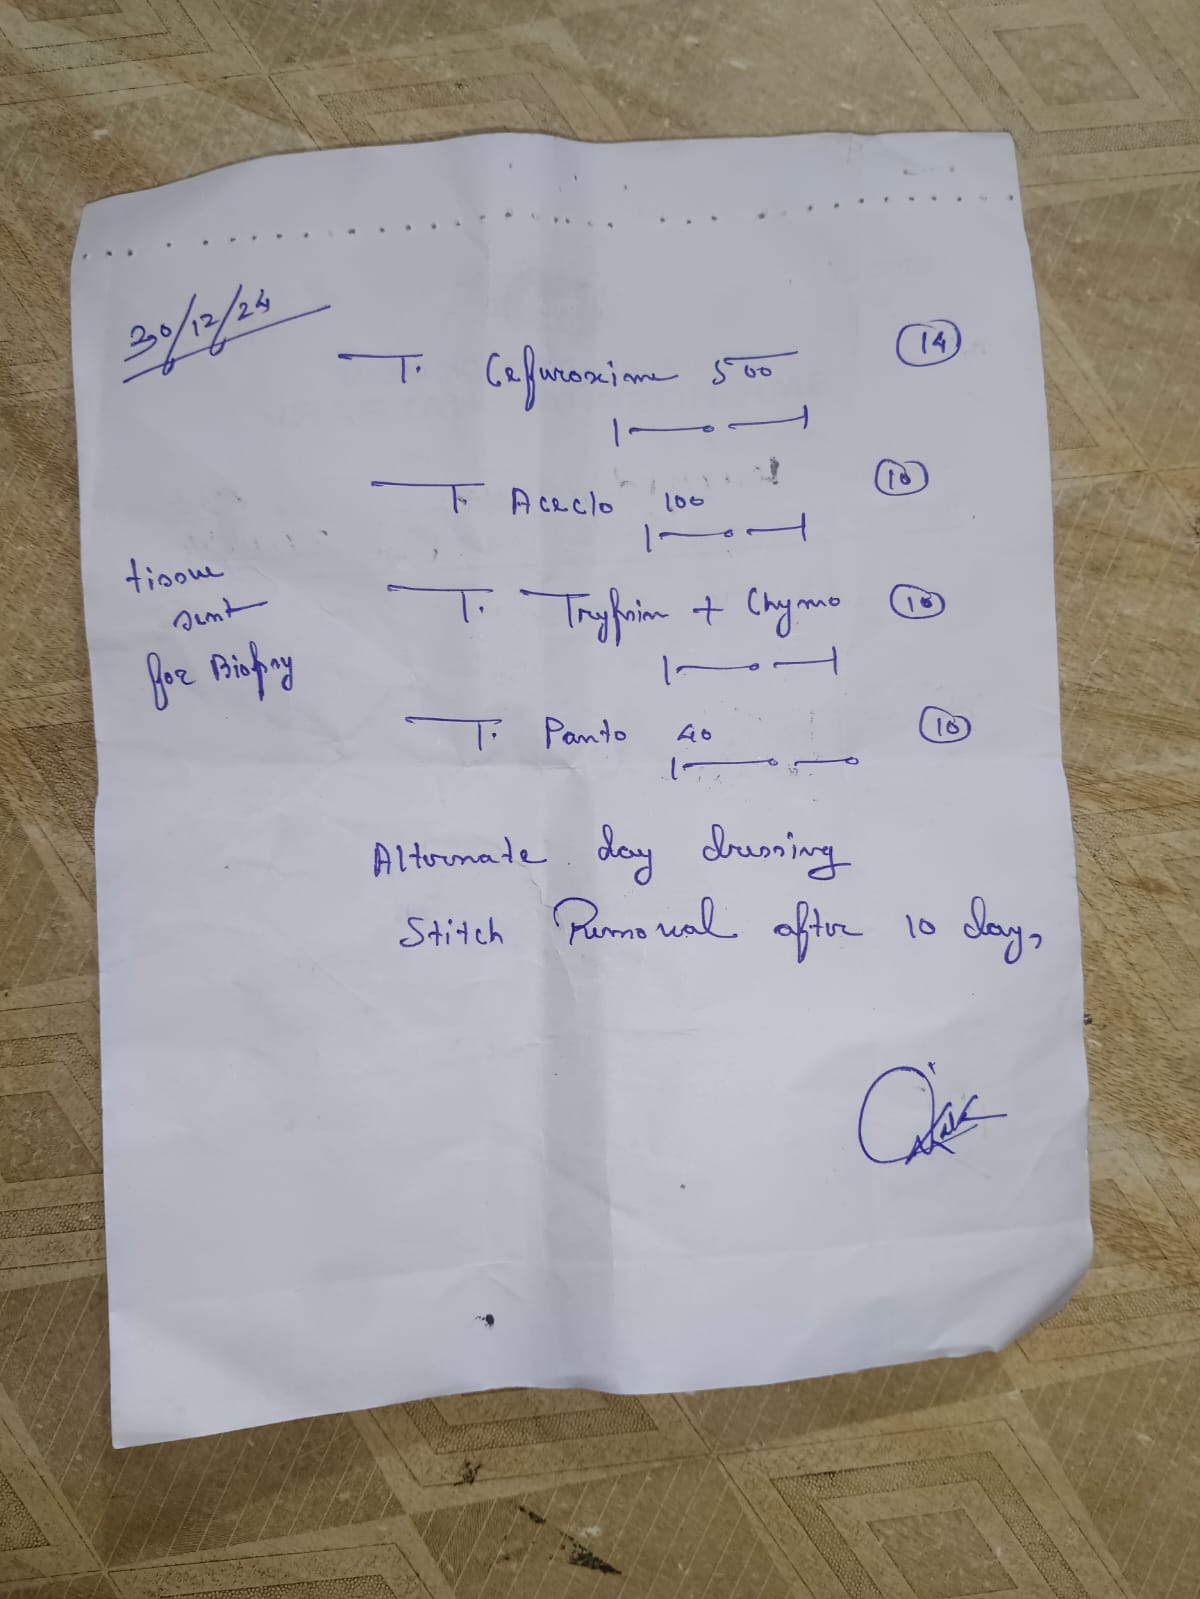 30/12/24
T. Cefuroxime 500 14
1—0—1
T. Aceclo 100 10
1—0—1
tissue
sent
for Biopsy
T. Trypsin + Chymo 10
1—0—1
T. Panto 40 10
1—0—0
Alternate day dressing
Stitch Removal after 10 days